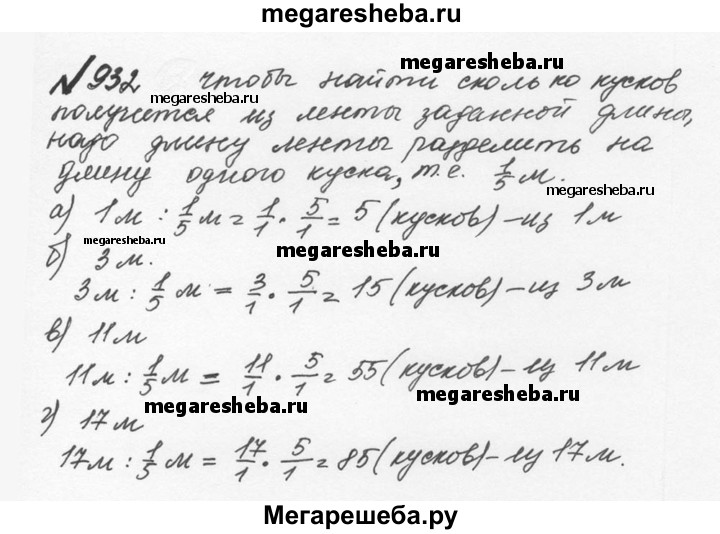 megaresheba.ru
megaresheba.ru
№ 932 чтобы найти сколько кусков
megaresheba.ru
получется из ленты заданной длины,
надо длину ленты разделить на
длину одного куска, т.е. 1/5 м.
megaresheba.ru
а) 1м : 1/5 м = 1/1 · 5/1 = 5 (кусков) – из 1м
megaresheba.ru
megaresheba.ru
б) 3 м.
3м : 1/5 м = 3/1 · 5/1 = 15 (кусков) – из 3м
в) 11м
11м : 1/5 м = 11/1 · 5/1 = 55 (кусков) – из 11м
megaresheba.ru
megaresheba.ru
г) 17м
17м : 1/5 м = 17/1 · 5/1 = 85 (кусков) – из 17м.
Мегарешеба.ру